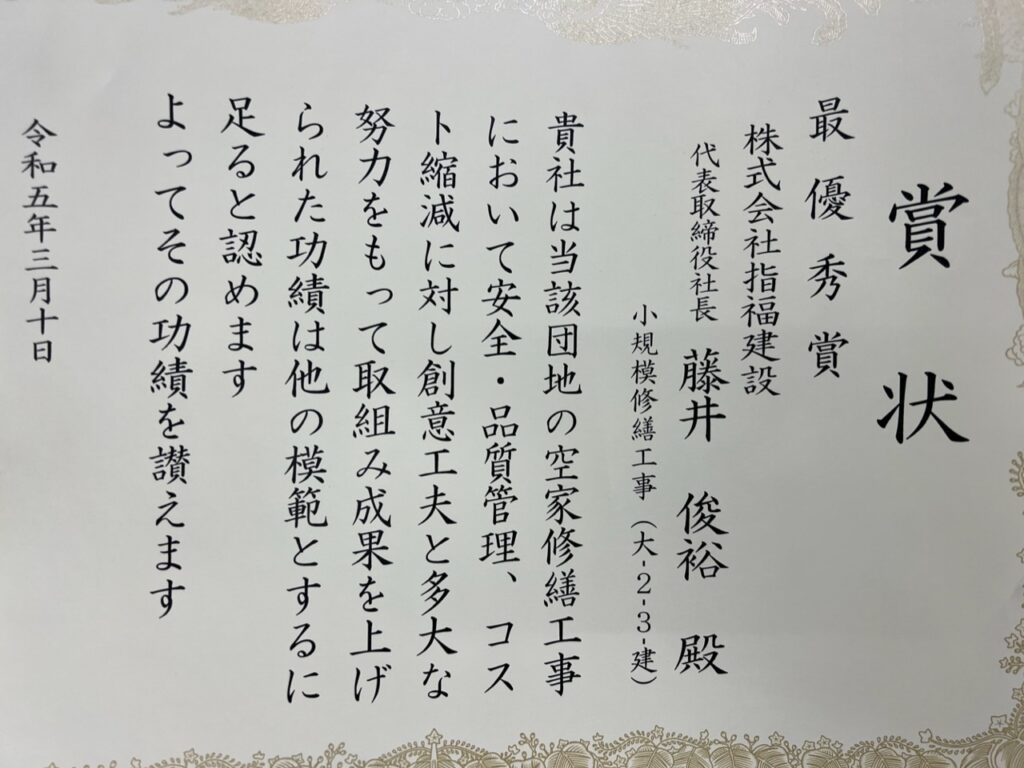 賞状
最優秀賞
株式会社指福建設
代表取締役社長 藤井 俊裕 殿
小規模修繕工事（大-2-3-建）
貴社は当該団地の空家修繕工事
において安全・品質管理、コス
ト縮減に対し創意工夫と多大な
努力をもって取組み成果を上げ
られた功績は他の模範とするに
足ると認めます
よってその功績を讃えます
令和五年三月十日